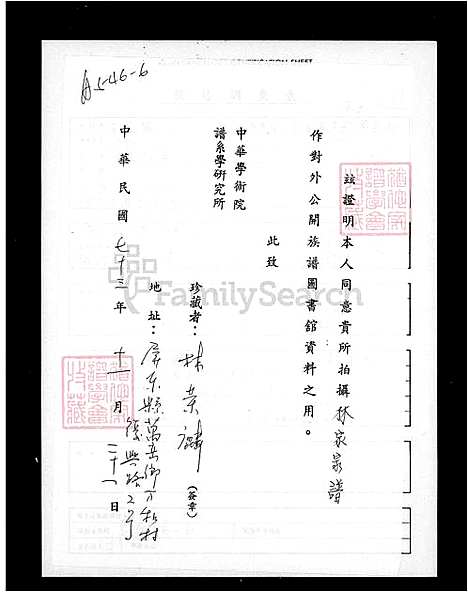 A5-46-6
茲證明本人同意貴所拍攝林家家譜
作對外公開族譜圖書館資料之用。
此致
中華學術院
譜系學研究所
珍藏者：林 (簽章)
地址：屏東縣萬 鄉 村
復興路 2 号
中華民國 七十三 年 十一 月 日
FamilySearch